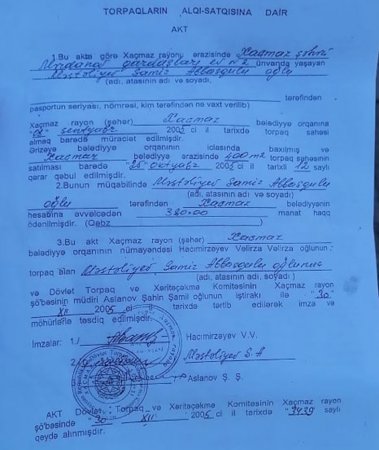 TORPAQLARIN ALQI-SATQISINA DAİR
AKT
1.Bu akta görə Xaçmaz rayonu ərazisində Xaçmaz şəhəri
qardaşları ev № 2 ünvanda yaşayan
Məstəliyev Samiz Abbasqulu oğlu
(adı, atasının adı və soyadı,
tərəfindən
pasportun seriyası, nömrəsi, kim tərəfindən nə vaxt verilib)
Xaçmaz rayon (şəhər) Xaçmaz bələdiyyəsinə
sentyabr 2005 ci il tarixdə torpaq sahəsi
almaq barədə müraciət edilmişdir.
Ərizəyə bələdiyyə orqanının iclasında baxılmış və
Xaçmaz bələdiyyə ərazisində 600 m2 torpaq sahəsinin
satılması barədə "28" oktyabr 2005 ci il tarixli 12 saylı
qərar qəbul edilmişdir.
2.Bunun müqabilində Məstəliyev Samiz Abbasqulu
(adı, atasının adı və soyadı)
oğlu tərəfindən Xaçmaz bələdiyyənin
hesabına əvvəlcədən 380-00 manat haqq
ödənilmişdir. (Qəbz )
3.Bu akt Xaçmaz rayon (şəhər) Xaçmaz
bələdiyyə orqanının nümayəndəsi Hacımirzəyev Vəlirza Vəlirza oğlunun
torpaq alan Məstəliyev Samiz Abbasqulu oğlunun
(adı, atasının adı, soyadı)
və Dövlət Torpaq və Xəritəçəkmə Komitəsinin Xaçmaz rayon
şö'bəsinin müdiri Aslanov Şahin Şamil oğlunun iştirakı ilə "30"
XII 2005 ci il tarixdə tərtib edilərək imza və
möhürlərlə təsdiq edilmişdir.
İmzalar: 1./ Hacımirzəyev V.V.
2/ Məstəliyev S.A
Aslanov Ş. Ş.
AKT Dövlət Torpaq və Xəritəçəkmə Komitəsinin Xaçmaz rayon
şö'bəsində "30" XII 2005 ci il tarixdə "3439" saylı
qeydə alınmışdır.